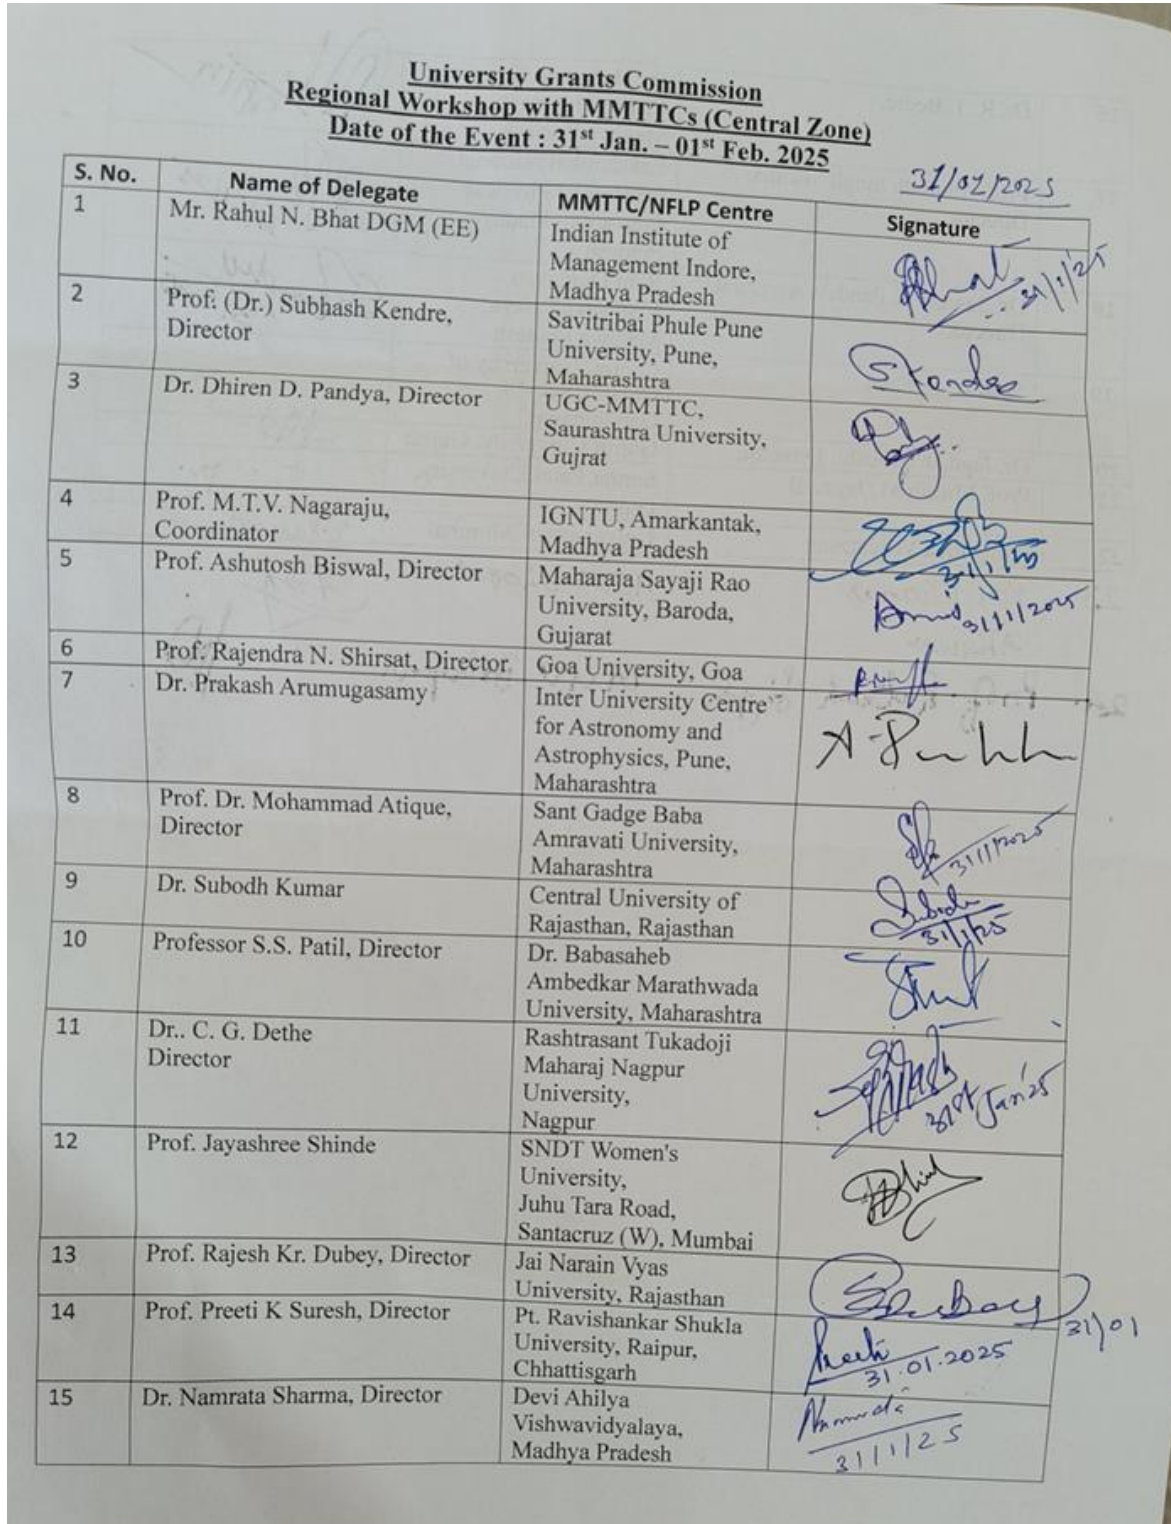 University Grants Commission
Regional Workshop with MMTTCs (Central Zone)
Date of the Event : 31st Jan. – 01st Feb. 2025
31/01/2025
S. No. Name of Delegate MMTTC/NFLP Centre Signature
1 Mr. Rahul N. Bhat DGM (EE) Indian Institute of
Management Indore,
Madhya Pradesh
31/1/25
2 Prof. (Dr.) Subhash Kendre, Savitribai Phule Pune
Director University, Pune,
Maharashtra
3 Dr. Dhiren D. Pandya, Director UGC-MMTTC,
Saurashtra University,
Gujrat
4 Prof. M.T.V. Nagaraju, IGNTU, Amarkantak,
Coordinator Madhya Pradesh
5 Prof. Ashutosh Biswal, Director Maharaja Sayaji Rao
University, Baroda,
Gujarat
31/1/2025
6 Prof. Rajendra N. Shirsat, Director Goa University, Goa
7 Dr. Prakash Arumugasamy Inter University Centre
for Astronomy and
Astrophysics, Pune,
Maharashtra
8 Prof. Dr. Mohammad Atique, Sant Gadge Baba
Director Amravati University,
Maharashtra
31/1/2025
9 Dr. Subodh Kumar Central University of
Rajasthan, Rajasthan
31/1/25
10 Professor S.S. Patil, Director Dr. Babasaheb
Ambedkar Marathwada
University, Maharashtra
11 Dr.. C. G. Dethe Rashtrasant Tukadoji
Director Maharaj Nagpur
University,
Nagpur
31st Jan'25
12 Prof. Jayashree Shinde SNDT Women's
University,
Juhu Tara Road,
Santacruz (W), Mumbai
13 Prof. Rajesh Kr. Dubey, Director Jai Narain Vyas
University, Rajasthan
31/01
14 Prof. Preeti K Suresh, Director Pt. Ravishankar Shukla
University, Raipur,
Chhattisgarh
Preeti
31.01.2025
15 Dr. Namrata Sharma, Director Devi Ahilya
Vishwavidyalaya,
Madhya Pradesh
31/1/25